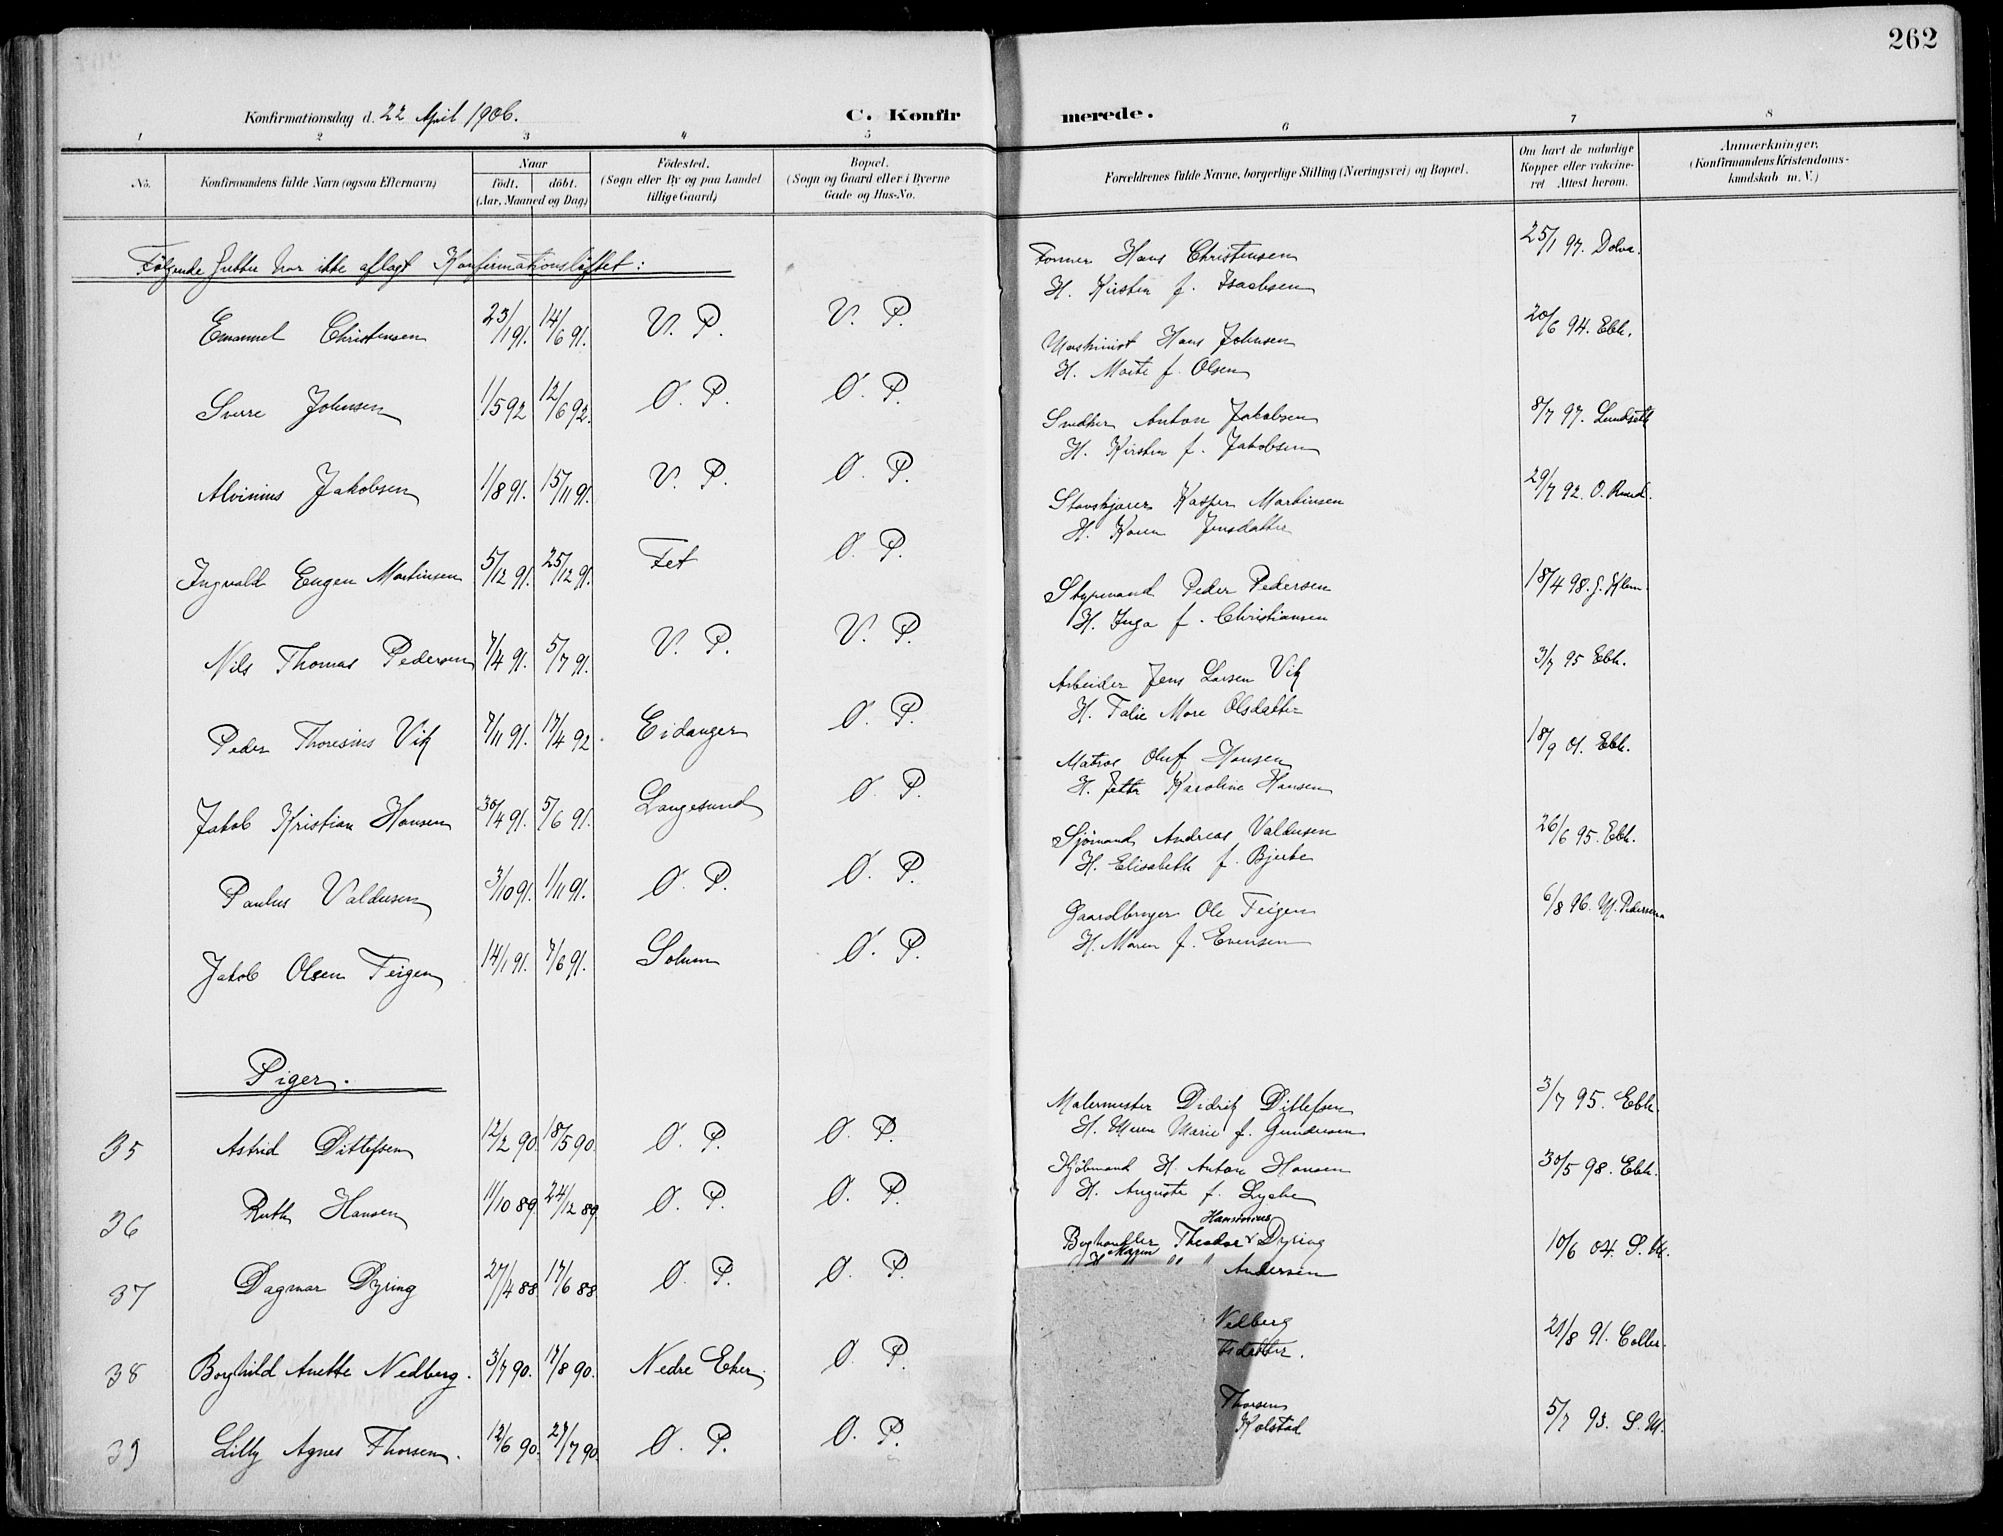 262
Konfirmationsdag d. 22 April 1906.
C. Konfirmerede.
1 2 3 4 5 6 7 8
No.
Konfirmandens fulde Navn (ogsaa Efternavn)
Naar
født. døbt.
(Aar, Maaned og Dag)
Fødested.
(Sogn eller By og paa Landet
tillige Gaard)
Bopæl.
(Sogn og Gaard eller i Byerne
Gade og Hus-No.
Forældrenes fulde Navne, borgerlige Stilling (Næringsvei) og Bopæl.
Om havt de naturlige
Kopper eller vakcine-
ret Attest herom.
Anmærkninger,
(Konfirmandens Kristendoms-
kundskab m. V.)
Følgende Gutter har ikke aflagt Konfirmationsløftet:
Emanuel Christensen 23/1 91. 14/6 91. V. P. V. P. Former Hans Christensen 25/1 97. Dolva.
H. Kirstin f. Isachsen
Sverre Johnsen 1/5 92 12/6 92. Ø. P. Ø. P. Maskinist Hans Johnsen 20/6 94. Ebh.
H. Marte f. Olsen
Alvinius Jakobsen 1/8 91. 15/11 91. V. P. Ø. P. Snedker Anton Jakobsen 8/7 97. Lundseth
H. Kirstin f. Jakobsen
Ingvald Eugen Martinsen 5/12 91. 25/12 91. Fet Ø. P. Stavskjærer Kasper Martinsen 29/7 92. O. Ruud.
H. Karen Jensdatter
Nils Thomas Pedersen 7/4 91. 5/7 91. V. P. V. P. Styrmand Peder Pedersen 18/4 98.
H. Inga f. Christiansen
Peder Thoresius Vik 7/11 91. 17/4 92. Eidanger Ø. P. Arbeider Jens Larsen Vik 3/7 95 Ebh.
H. Talie Mare Olsdatter
Jakob Kristian Hansen 30/4 91. 5/6 91. Langesund Ø. P. Matros Oluf Hansen 18/9 01. Ebh.
H. Jette Karoline Hansen
Paulus Valdusen 3/10 91. 1/11 91. Ø. P. Ø. P. Sjømand Andreas Valdusen 26/6 95. Ebh.
H. Elisabeth f. Bjerke
Jakob Olsen Teigen 14/1 91. 7/6 91. Solum Ø. P. Gaardbruger Ole Teigen 6/8 96. M. Pedersen
H. Maren f. Evensen
Piger.
35 Astrid Ditlefsen 12/2 90. 18/5 90. Ø. P. Ø. P. Malermester Didrik Ditlefsen 3/7 95. Ebh.
H. Maren Marie f. Gundersen
36 Ruth Hansen 11/10 89. 24/12 89. Ø. P. Ø. P. Kjøbmand H. Anton Hansen 30/5 98. Ebh.
H. Auguste f. Lyche
37 Dagmar Dyring 27/4 88. 17/6 88. Ø. P. Ø. P. Boghandler Theodor Hansinius Dyring 10/6 04. S. M.
Andersen
38 Borghild Anette Nedberg. 3/7 90. 17/8 90. Nedre Eker Ø. P. Nedberg 21/8 91. Coller.
tsdatter.
39 Lilly Agnes Thorsen. 12/6 90. 27/7 90. Ø. P. Ø. P. Thorsen 5/7 93. S. M.
Kolstad